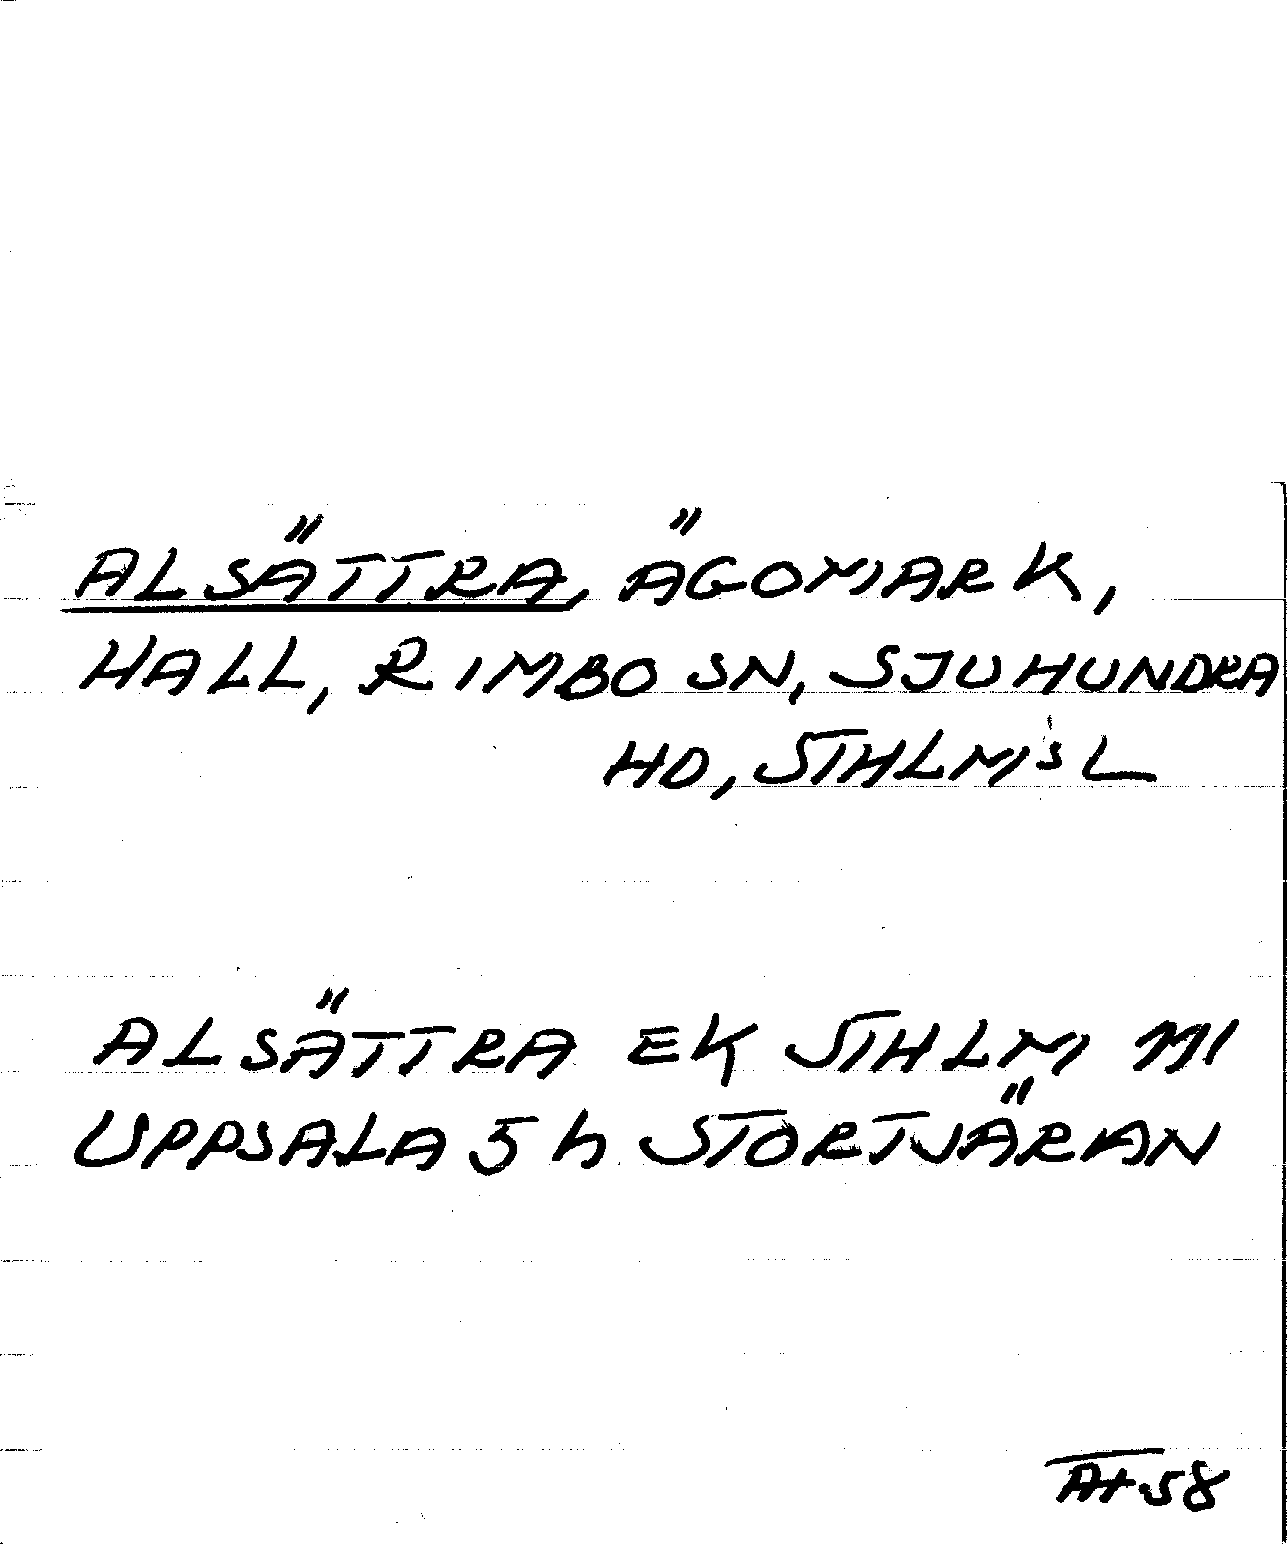 ALSÄTTRA, ÄGOMARK,
HALL, RIMBO SN, SJUHUNDRA
HD, STHLM'S L
ALSÄTTRA EK STHLM 111
UPPSALA 5 h STORTJÄRAN